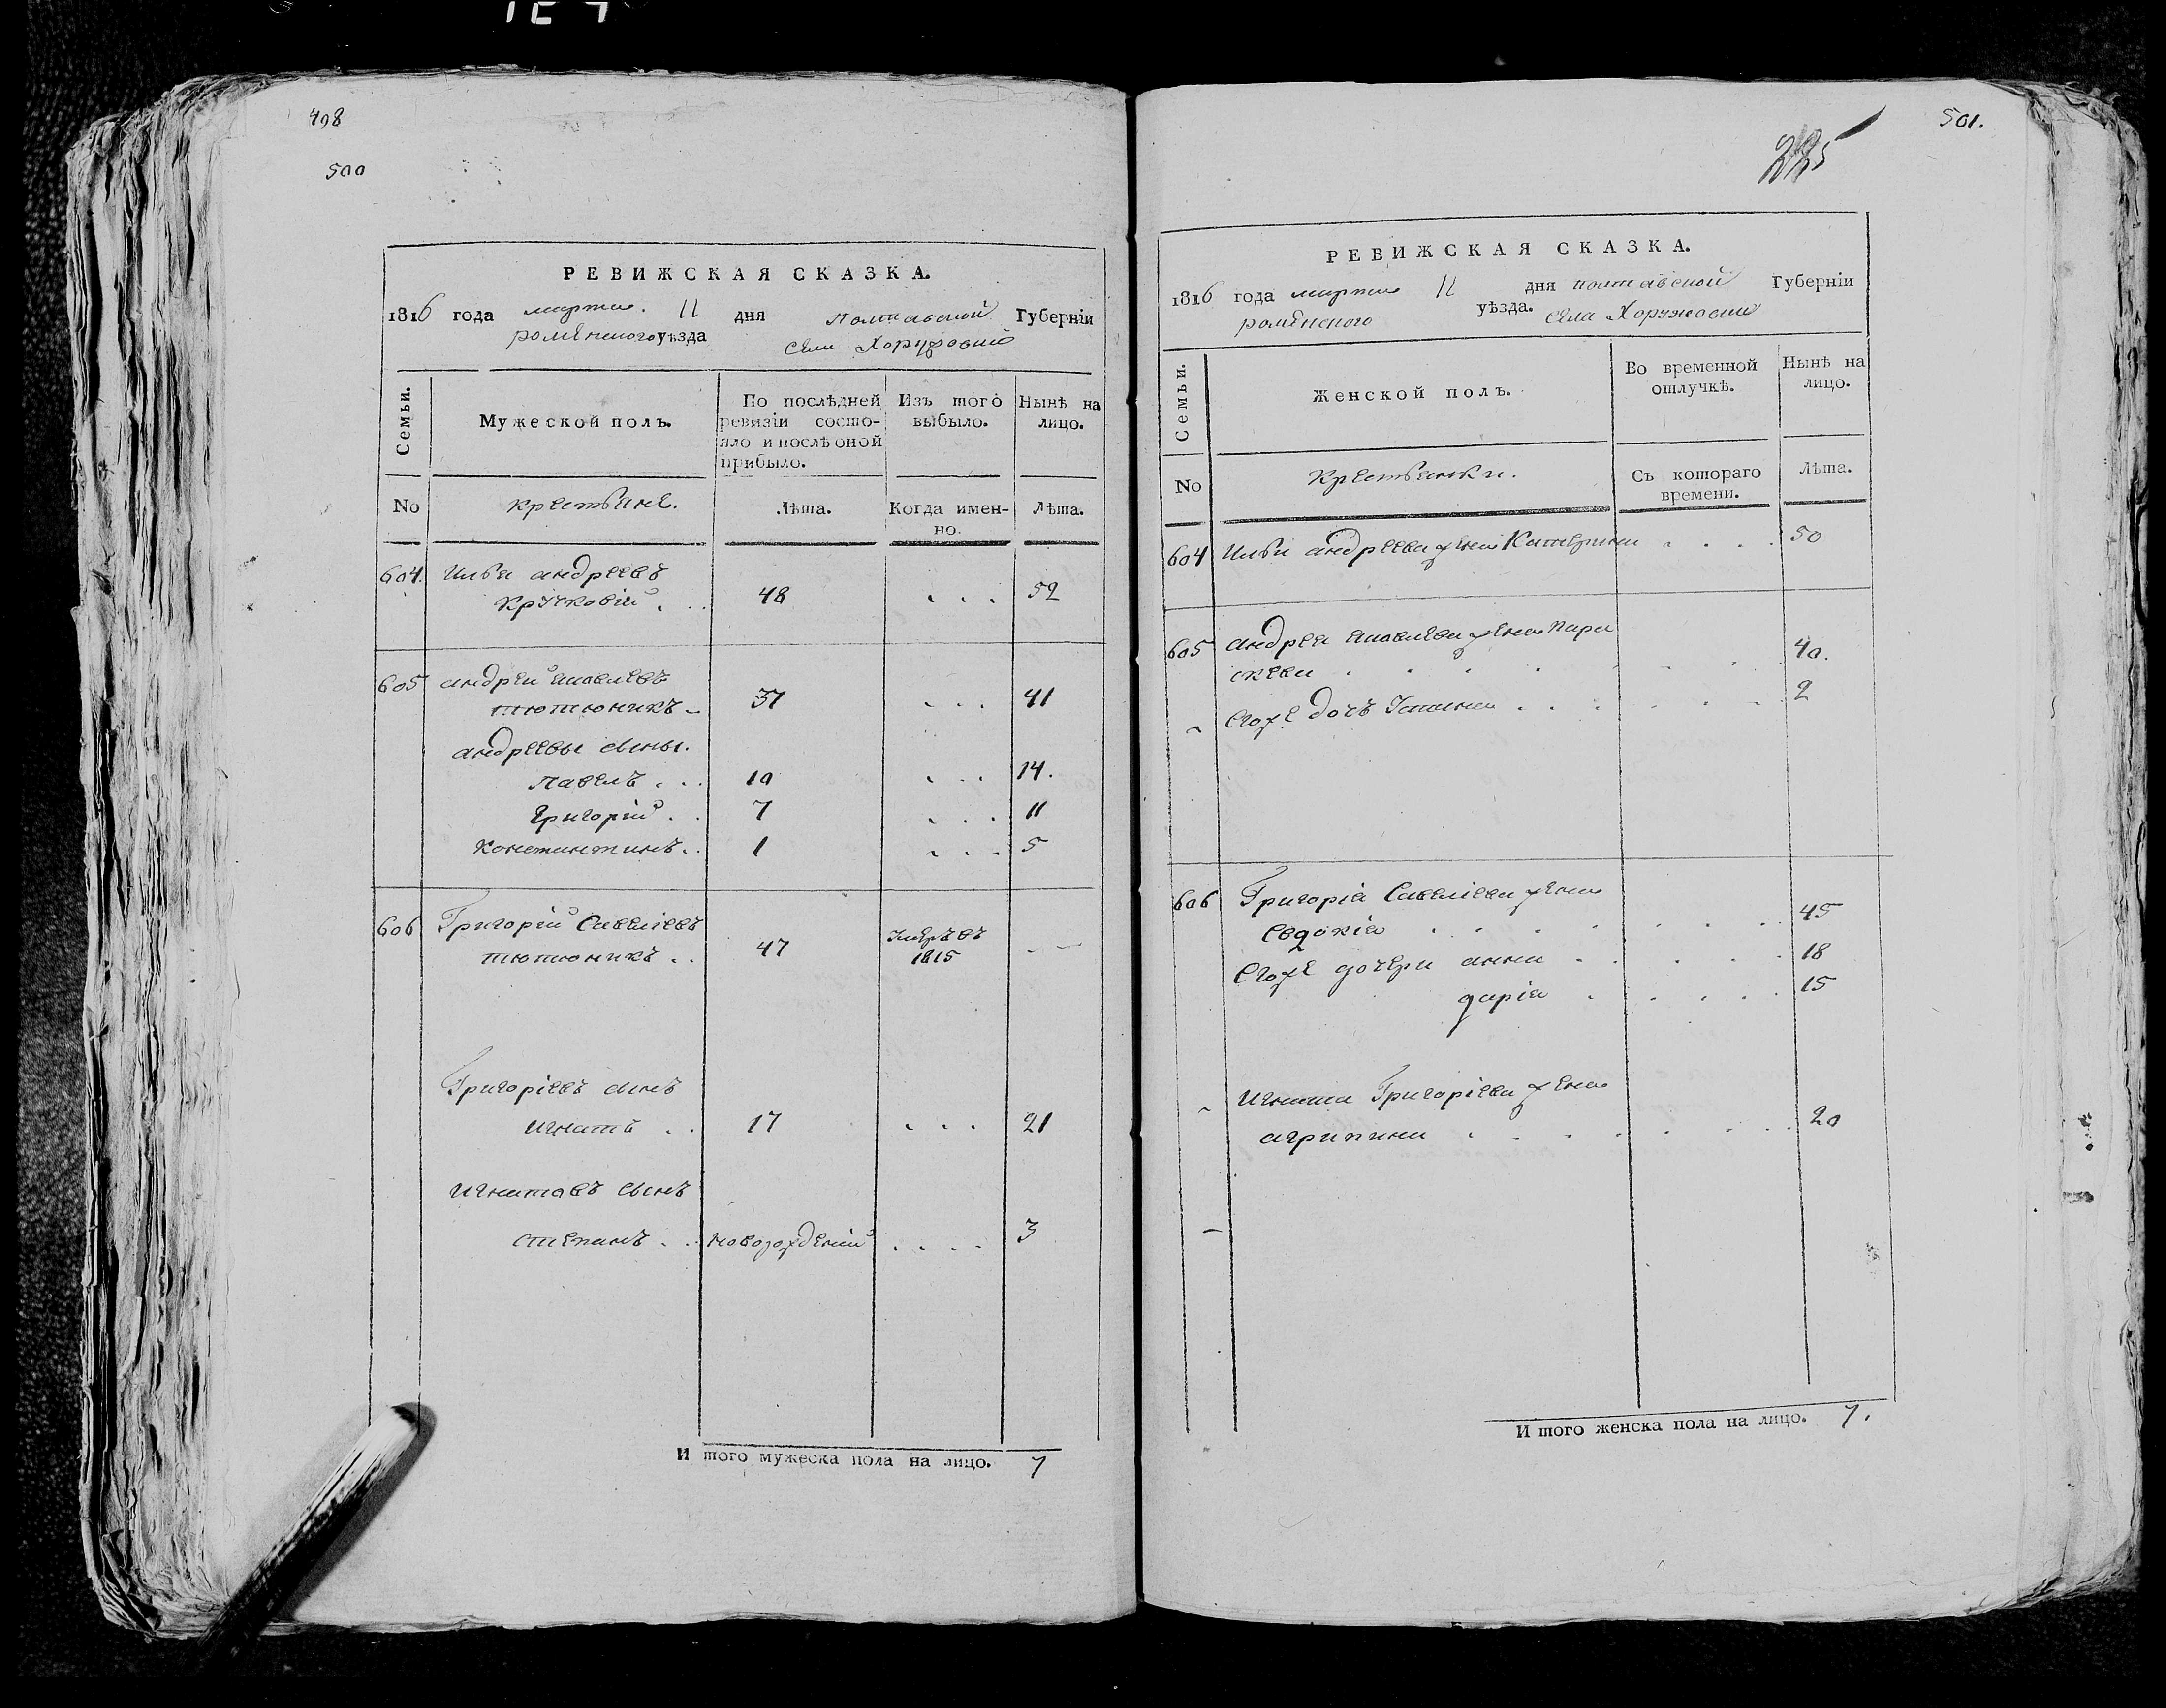 498
500
РЕВИЖСКАЯ СКАЗКА.
1816 года марта 11 дня Полтавской Губерніи
роменского уѣзда села Хоружовки
Семьи.
Мужеской полъ.
По послѣдней ревизіи состояло и послѣ оной прибыло.
Изъ того выбыло.
Нынѣ на лицо.
No
крестьяне.
Лѣта.
Когда именно.
Лѣта.
604. Илья андреевъ
Кручковій . . . 48 . . . 52
605 андрей яковлевъ
тютюникъ 37 . . . 41
андреевы сыны.
павелъ . . . 10 . . . 14.
григорій . . 7 . . . 11
константинъ . . 1 . . . 5
606 Григорій Савеліевъ
тютюникъ . . 47 умеръ въ 1815
Григоріевъ сынъ
игнатъ . . 17 . . . 21
игнатовъ сынъ
степанъ . . . новорожденій . . . . 3
И того мужеска пола на лицо. 7
501.
225
РЕВИЖСКАЯ СКАЗКА.
1816 года марта 11 дня полтавской Губерніи
роменского уѣзда. села Хоружовки
Семьи.
Женской полъ.
Во временной отлучкѣ.
Нынѣ на лицо.
No
крестьянки.
Съ котораго времени.
Лѣта.
604 Ильи андреева жена Катерина . . . . 50
605 андрея яковлева жена пара
скева . . . . . . . 40.
Егоже дочь Устина . . . . . . 2
606 Григорія Савеліева жена
евдокія . . . . . . . 45
Егоже дочери анна . . . . . 18
дарія . . . . . 15
игната Григоріева жена
агрипина . . . . . . . 20
И того женска пола на лицо. 7.